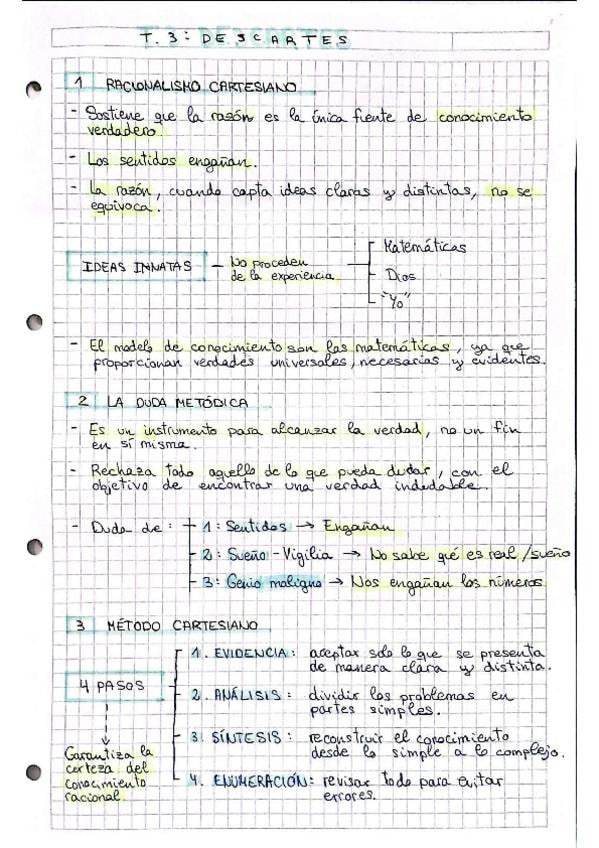 T. 3: DESCARTES
1 RACIONALISMO CARTESIANO
- Sostiene que la razón es la única fuente de conocimiento
verdadero.
- Los sentidos engañan.
- La razón, cuando capta ideas claras y distintas, no se
equivoca.
IDEAS INNATAS - No proceden
de la experiencia
Matemáticas
Dios
"Yo"
- El modelo de conocimiento son las matemáticas, ya que
proporcionan verdades universales, necesarias y evidentes.
2 LA DUDA METÓDICA
- Es un instrumento para alcanzar la verdad, no un fin
en sí misma.
- Rechaza todo aquello de lo que pueda dudar, con el
objetivo de encontrar una verdad indudable.
- Duda de: 1: Sentidos → Engañan
2: Sueño - Vigilia → No sabe qué es real/sueño
3: Genio maligno → Nos engañan los números
3 MÉTODO CARTESIANO
4 PASOS
Garantiza la
certeza del
conocimiento
racional.
1. EVIDENCIA: aceptar solo lo que se presenta
de manera clara y distinta.
2. ANÁLISIS: dividir los problemas en
partes simples.
3. SÍNTESIS: reconstruir el conocimiento
desde lo simple a lo complejo.
4. ENUMERACIÓN: revisar todo para evitar
errores.